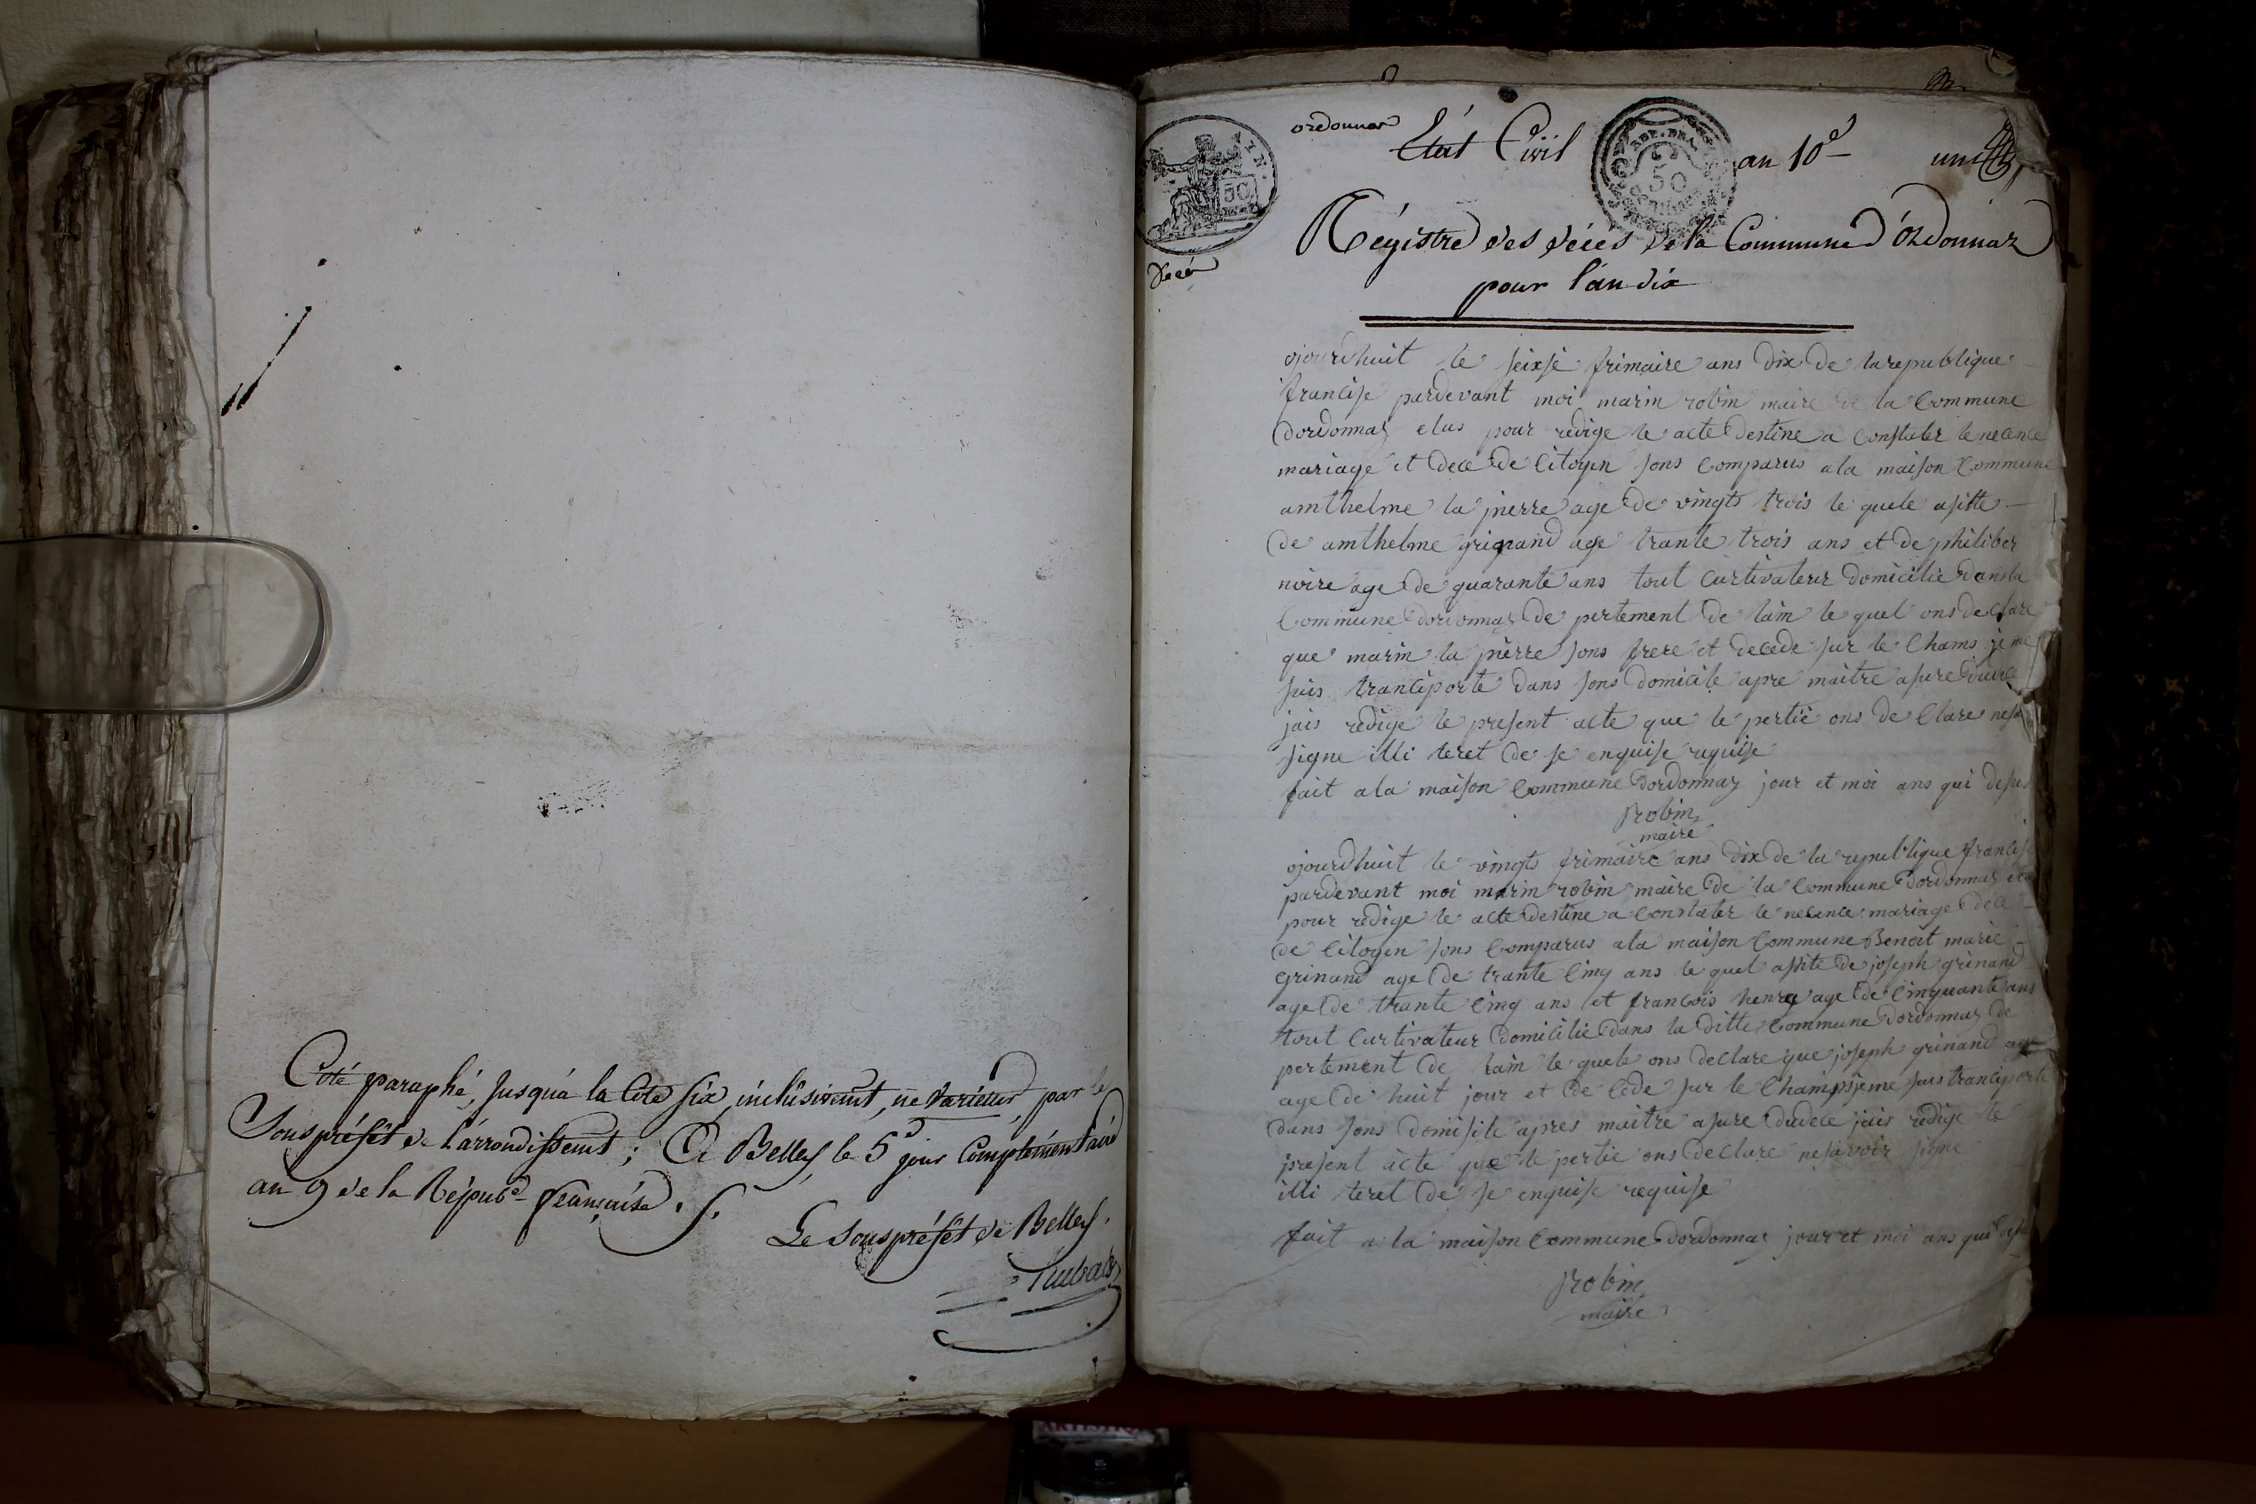 Coté paraphé, jusqu'à la Cote six, inclusivement, ne varietur, par le
Souspréfêt de l'arrondissemt; A Belley le 5e jour Complémentaire
an 9 de la Répube française.
Le Souspréfêt de Belley.
ordonnas
Etat Civil an 10e un
50
50
Régistre des décès de la Commune d'Ordonnaz
Decés
pour l'an dix
ojourdhuit le seixse frimaire ans dix de la republique
francise pardevant moi marin robin maire de la Commune
dordonnaz elus pour redige le acte destine a constater le necence
mariage et dece de Citoyen sons Comparus a la maison Commune
amthelme la pierre age de vingts trois le quele asitte
de amthelme grinand age trante trois ans et de philiber
noire age de quarante ans tout curtivateur domicilie dans la
Commune dordonnaz de pertement de lain le quel ons declare
que marin la pierre sons frere et decede sur le Chams je me
suis tranciporte dans sons domicile apre maitre asure
jais redige le present acte que le pertie ons de Clare
signe illi teret de se enquise requise
fait a la maison Commune dordonnaz jour et moi ans qui desus
Robin
maire
ojourdhuit le vingts frimaire ans dix de la republique francise
pardevant moi marin robin maire de la Commune dordonnaz
pour redige le acte destine a constater le necence mariage dece
de Citoyen sons Comparus a la maison Commune Benoit marie
grinand age de trante cinq ans le quel assite de joseph grinand
age de trante cinq ans et francois henry age de cinquante ans
tout curtivateur domicilie dans la ditte Commune dordonnaz de
pertement de lain le quele ons declare que joseph grinand
age de huit jour et de cede sur le Champs jeme suis tranciporte
dans sons domisile apres maitre asure dudece jais redige le
present acte que le pertie ons declare nesavoir signe
illi teret de se enquise requise
fait a la maison Commune dordonnaz jour et moi ans qui
Robin
maire